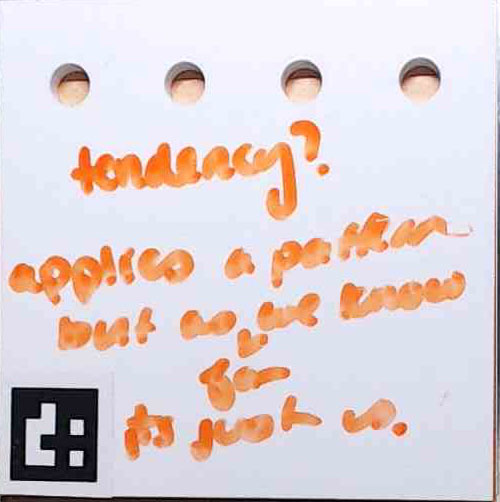 tendency?
applies a pattern
but as we know
far
its just us.